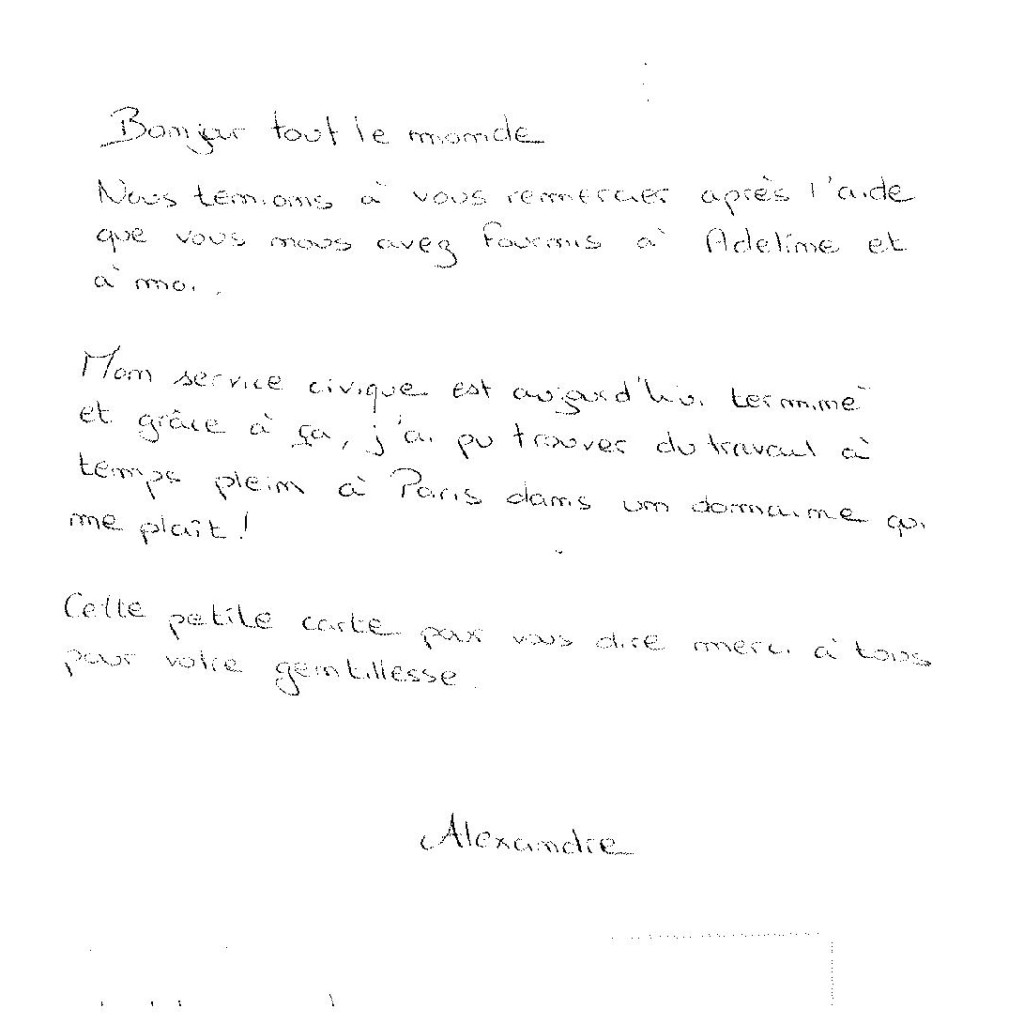 Bonjour tout le monde
Nous tenions à vous remercier après l'aide
que vous nous avez fournis à Adeline et
à moi.
Mon service civique est aujourd'hui terminé
et grâce à ça, j'ai pu trouver du travail à
temps plein à Paris dans un domaine qui
me plaît !
Cette petite carte pour vous dire merci à tous
pour votre gentillesse.
Alexandre